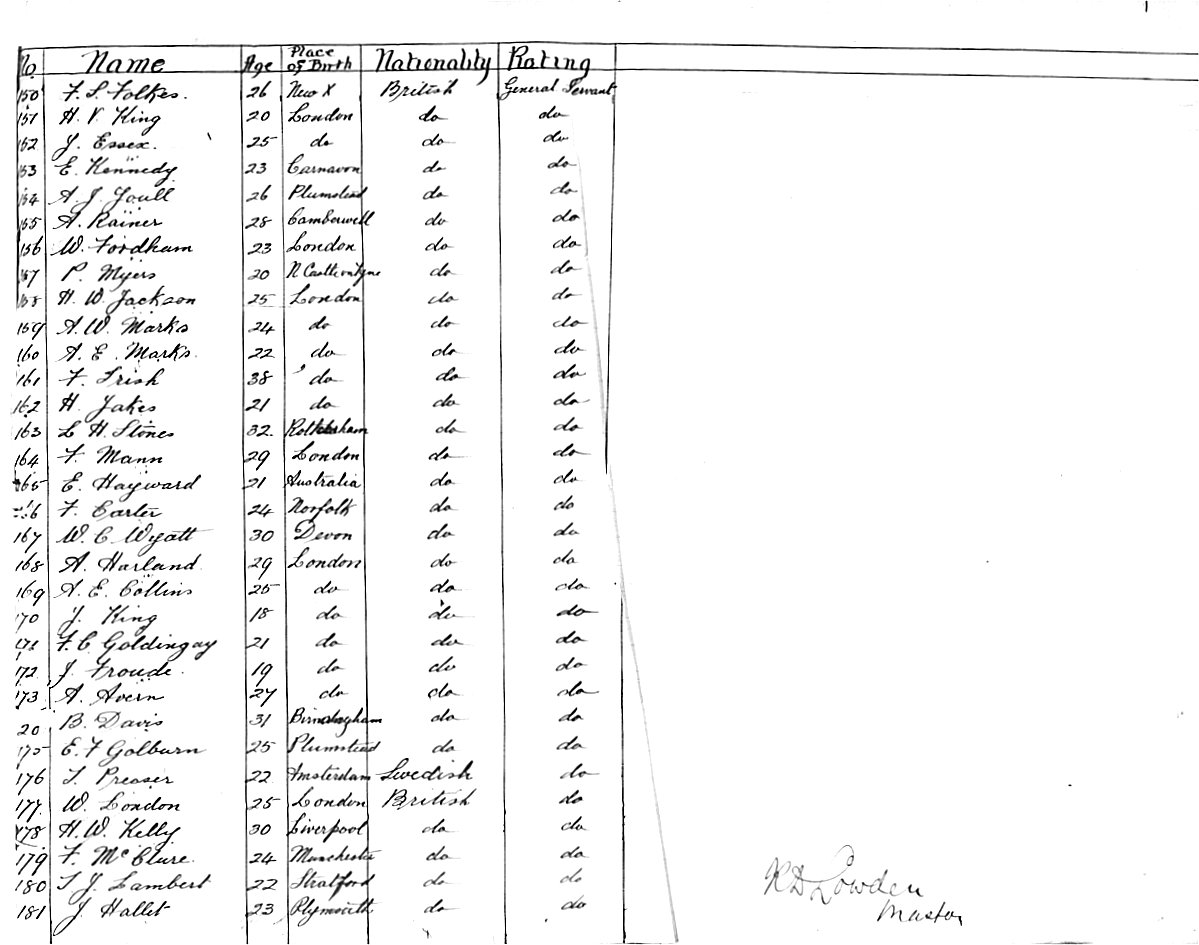 No. Name Age Place of Birth Nationality Rating
150 F. S. Folkes. 26 New X British General Servant
151 H. V. King 20 London do do
152 J. Essex. 25 do do do
153 E. Kennedy 23 Carnavon do do
154 A. J. Youll 26 Plumstead do do
155 A. Rainer 28 Camberwell do do
156 W. Fordham 23 London do do
157 P. Myers 20 N Castle on Tyne do do
158 H. W. Jackson 25 London do do
159 A. W. Marks 24 do do do
160 A. E. Marks. 22 do do do
161 F. Irish 38 do do do
162 H. Jakes 21 do do do
163 L H. Stones 32. do do
164 F. Mann 29 London do do
165 E. Hayward 21 Australia do do
F. Carter 24 Norfolk do do
167 W. C. Wyatt 30 Devon do do
168 A. Harland. 29 London do do
169 A. E. Collins 25 do do do
170 J. King 18 do do do
171 F. C. Goldingay 21 do do do
172 J. Froude. 19 do do do
173 A. Avern 27 do do do
20 B. Davis 31 Birmingham do do
175 E. F Golburn 25 Plumstead do do
176 T. Preaser 22 Amsterdam Swedish do
177. W. London 25 London British do
178 H. W. Kelly 30 Liverpool do do
179 F. McClure. 24 Manchester do do
180 T J. Lambert 22 Stratford do do
181 J. Hallet 23 Plymouth do do
R D Lowden
Master